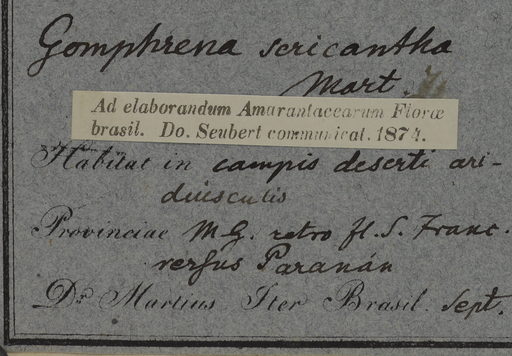 Gomphrena sericantha
Mart.
Ad elaborandum Amarantacearum Floræ
brasil. Do. Seubert communicat. 1874.
Habitat in campis deserti ari-
duisculis
Provinciae M.G. retro fl. S. Franc.
versus Paranán
Dr. Martius Iter Brasil. Sept.